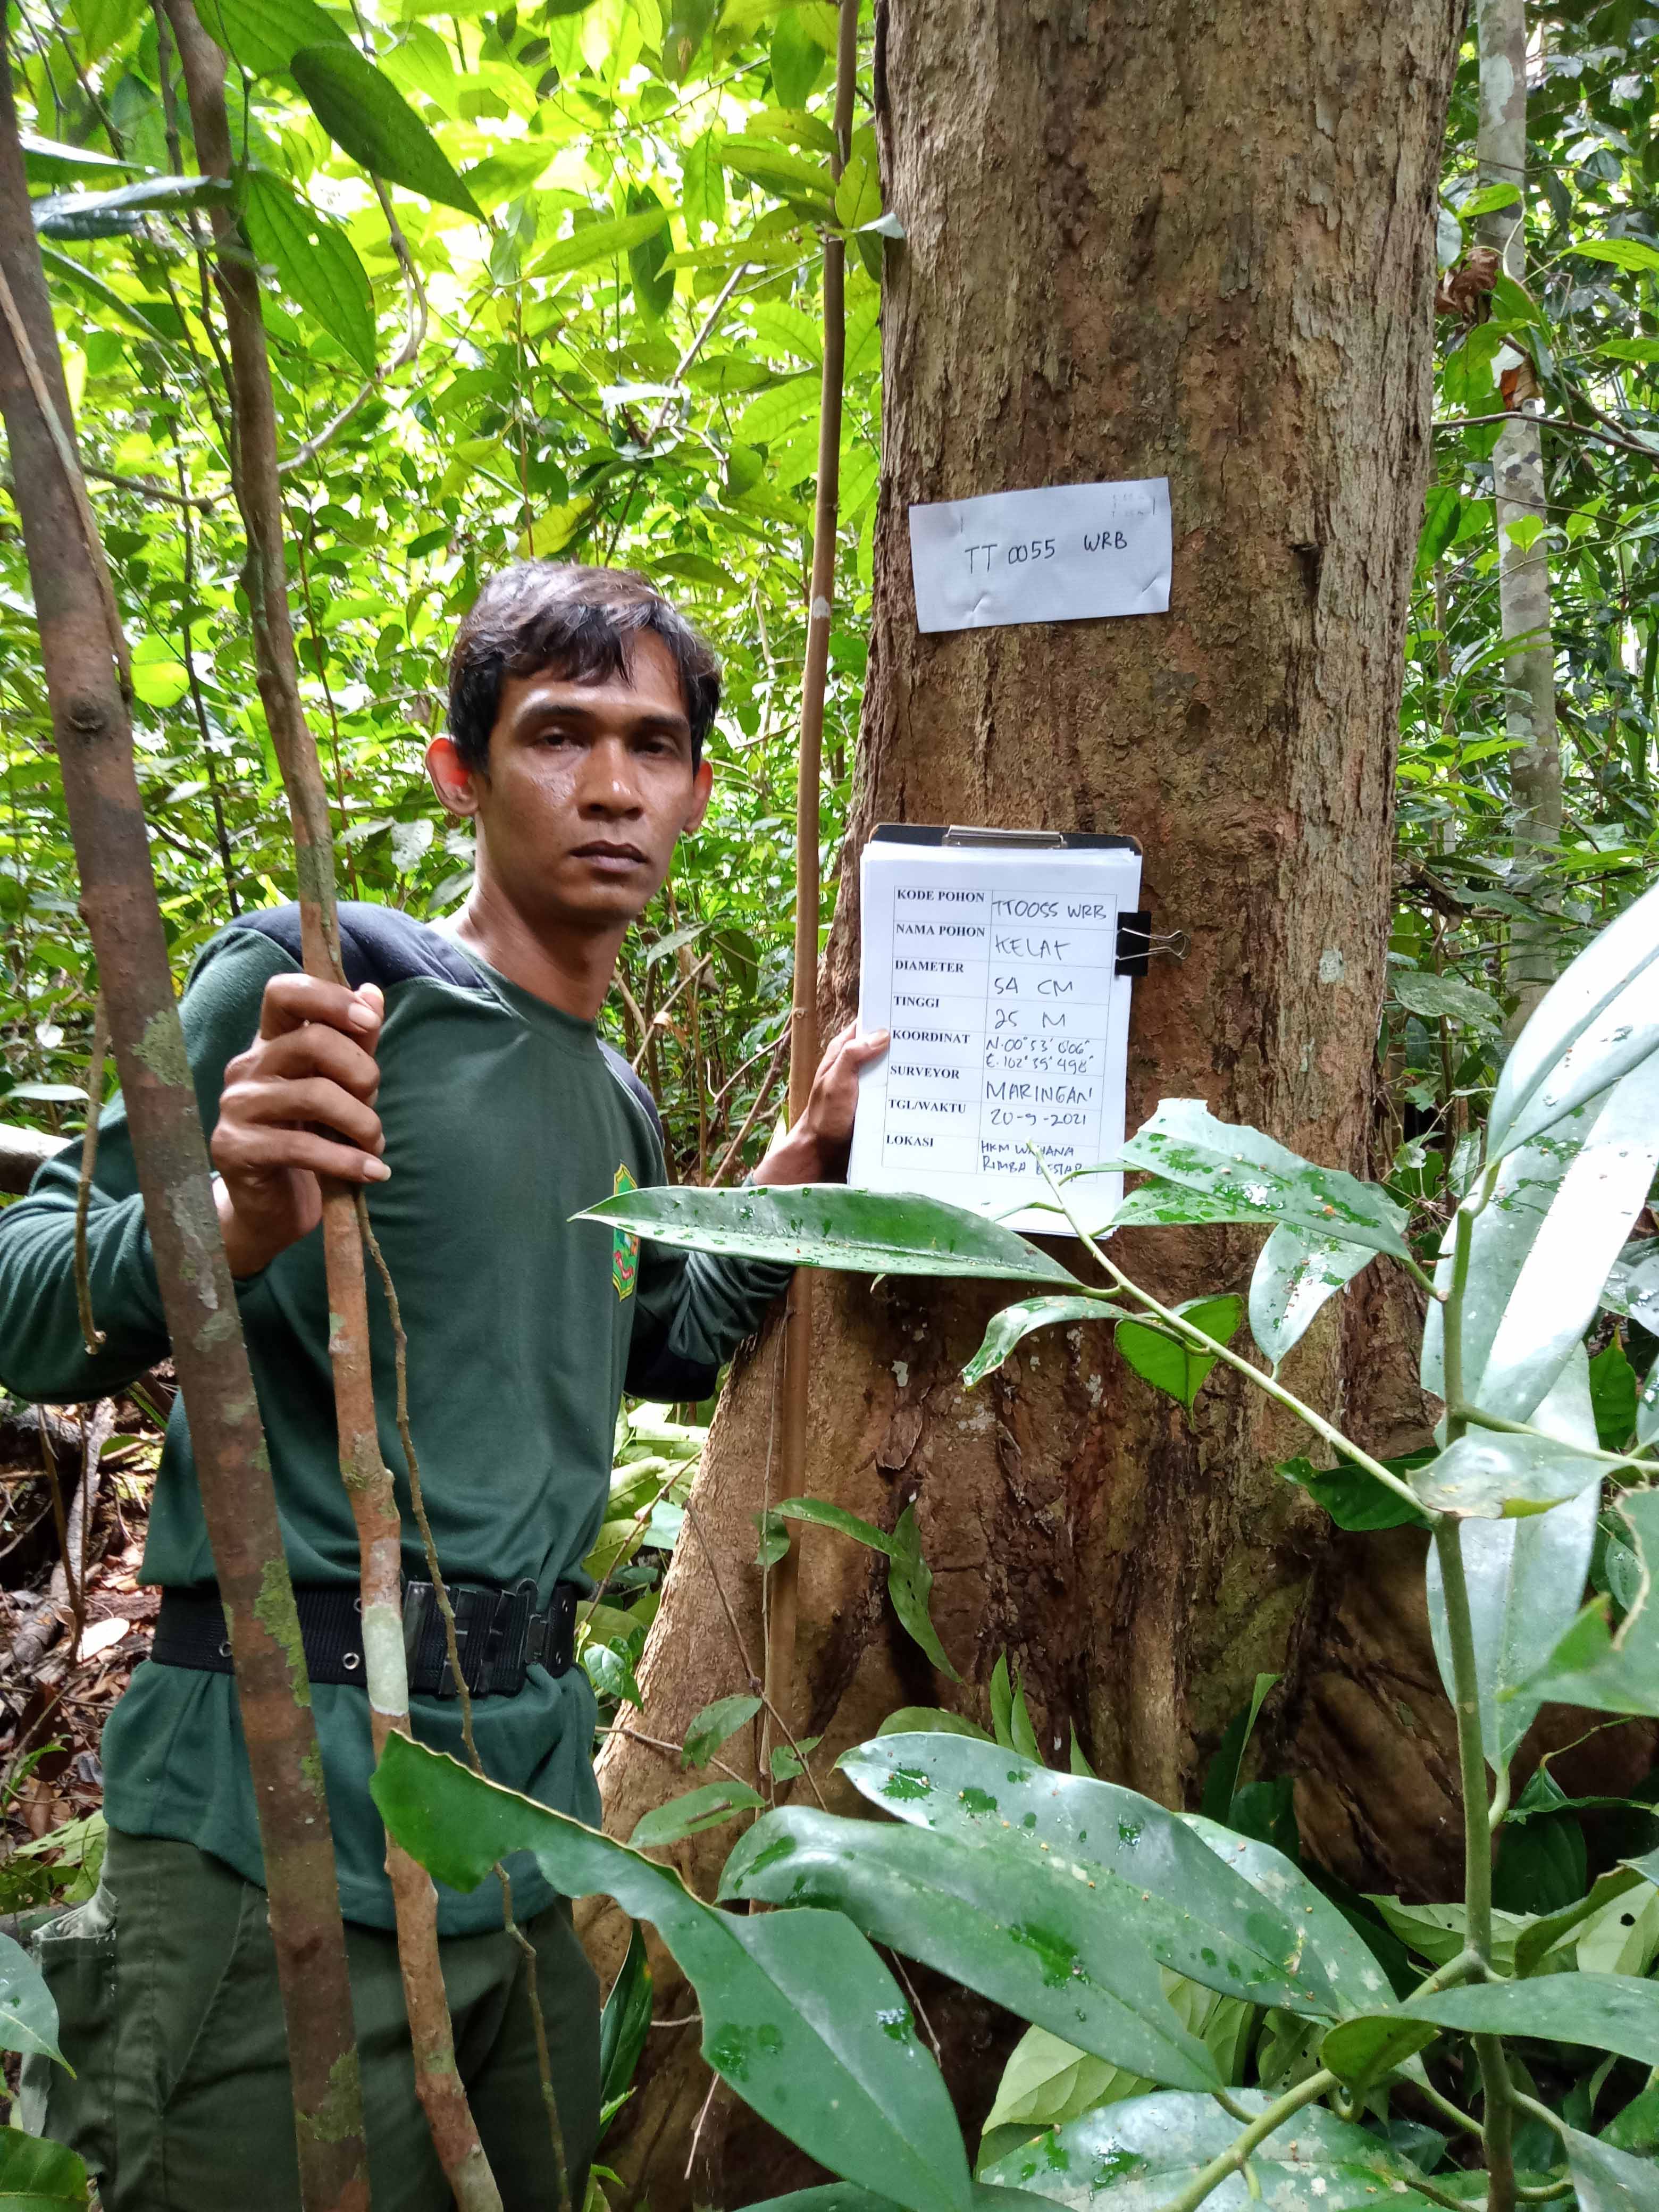 TT 0055 WRB
KODE POHON TT0055 WRB
NAMA POHON KELAT
DIAMETER 54 CM
TINGGI 25 M
KOORDINAT N.00° 53' 606"
E.102° 39' 498"
SURVEYOR MARINGAN
TGL/WAKTU 20-9-2021
LOKASI HKM WAHANA
RIMBA LESTARI